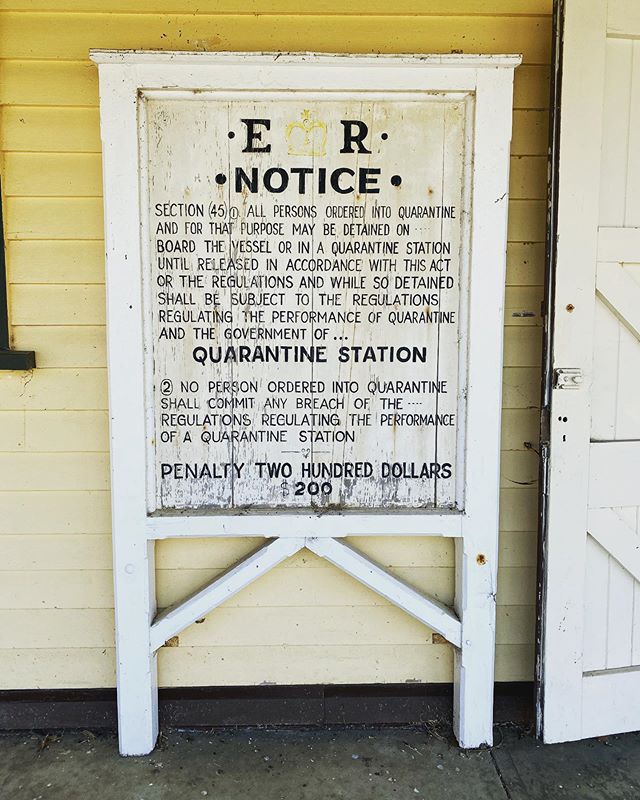 ·E R·
•NOTICE•
SECTION (45) ① ALL PERSONS ORDERED INTO QUARANTINE
AND FOR THAT PURPOSE MAY BE DETAINED ON ····
BOARD THE VESSEL OR IN A QUARANTINE STATION
UNTIL RELEASED IN ACCORDANCE WITH THIS ACT
OR THE REGULATIONS AND WHILE SO DETAINED
SHALL BE SUBJECT TO THE REGULATIONS
REGULATING THE PERFORMANCE OF QUARANTINE
AND THE GOVERNMENT OF...
QUARANTINE STATION
② NO PERSON ORDERED INTO QUARANTINE
SHALL COMMIT ANY BREACH OF THE ····
REGULATIONS REGULATING THE PERFORMANCE
OF A QUARANTINE STATION
PENALTY TWO HUNDRED DOLLARS
$200